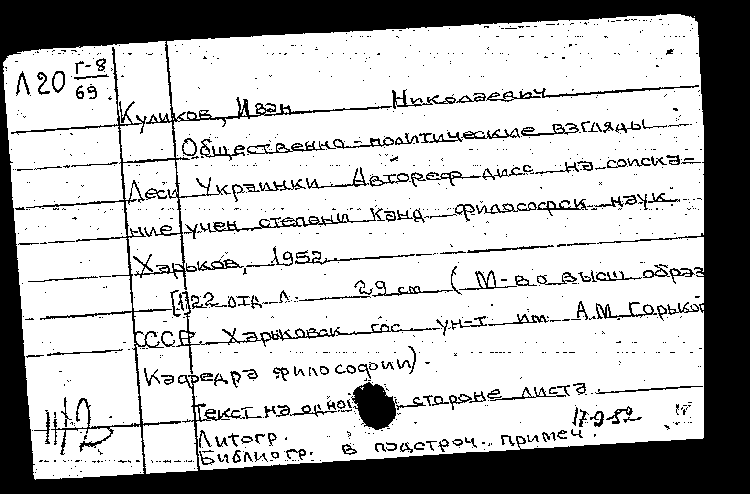 Л20 Г-8/69
Куликов, Иван Николаевич
Общественно-политические взгляды
Леси Украинки. Автореф. дисс. на соиска-
ние учен. степени канд. философск. наук.
Харьков, 1952.
[1] 22 отд. л. 29 см (М-во высш. образ.
СССР. Харьковск. гос. ун-т им. А.М. Горького
Кафедра философии).
Текст на одной стороне листа.
17-9-52
Литогр.
Библиогр. в подстроч. примеч.